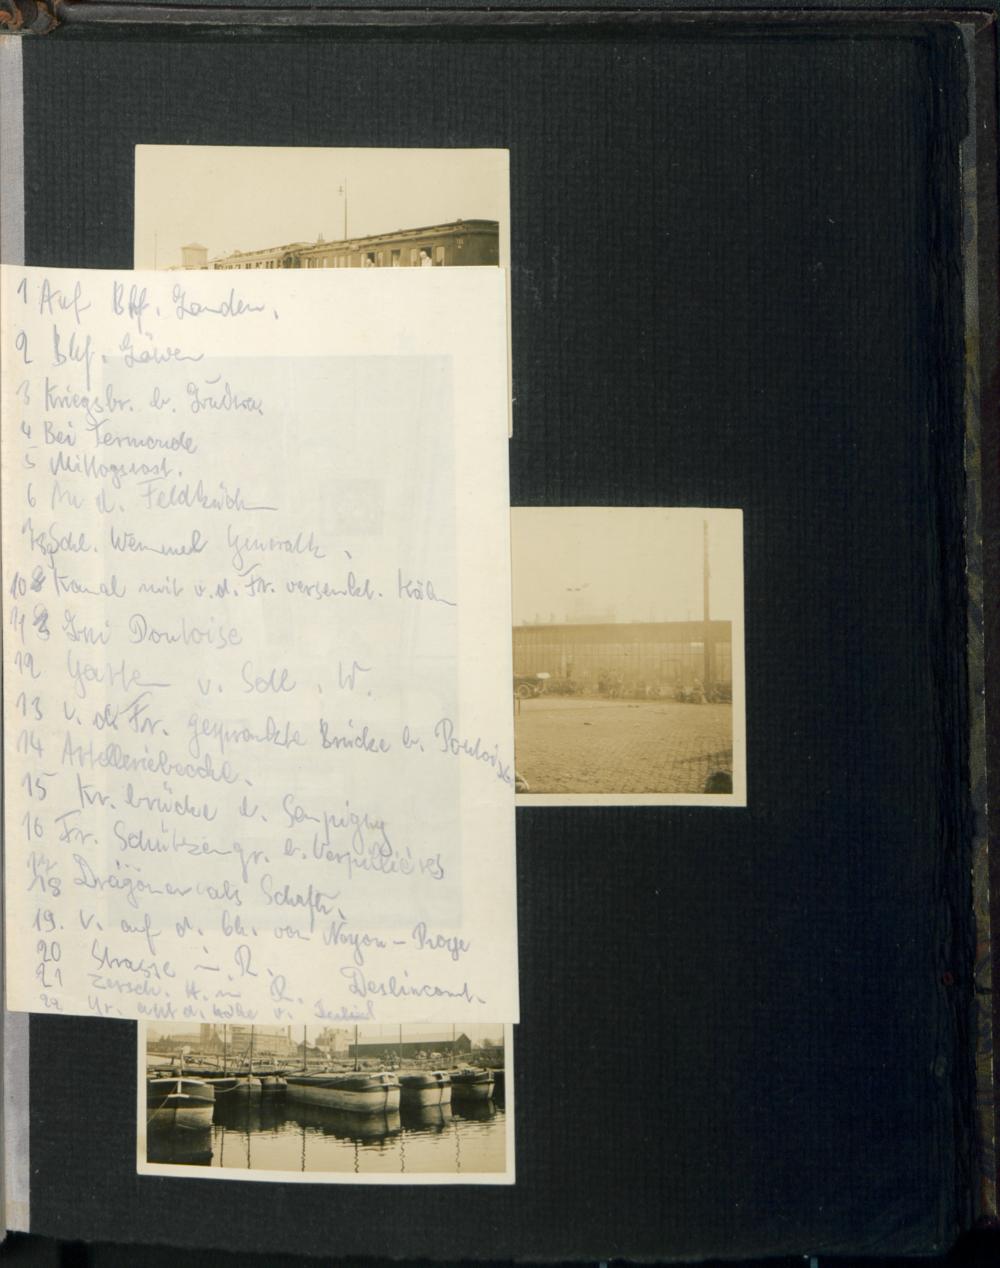 1 Auf Bhf. Landen.
2 Bhf. Löwen
3 Kriegsbr. b.
4 Bei Termonde
5 Mittagsrast.
6 An d. Feldküche
7/8 Schl. Wemmel Generalk.
10 Kanal mit v. d. Fr. versenkt. Kähn
11 Pontoise
12 Garten v. Schl. W.
13 v. d. Fr. gesprengte Brücke b. Pontoise
14 Artilleriebeob.
15 Kr. brücke b. Sempigny
16 Fr. Schützengr. b. Verpillières
17/18 Dragoner als Schafh.
19. V. auf d. Ch. von Noyon - Roye
20 Strasse in R.
21 zersch. H. in R. Deslincourt.
22 auf d. Höhe v.